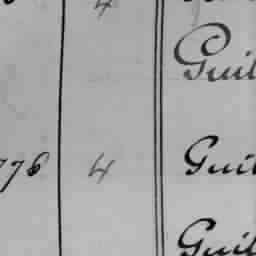 4
Guil
776 4 Guil
Guil